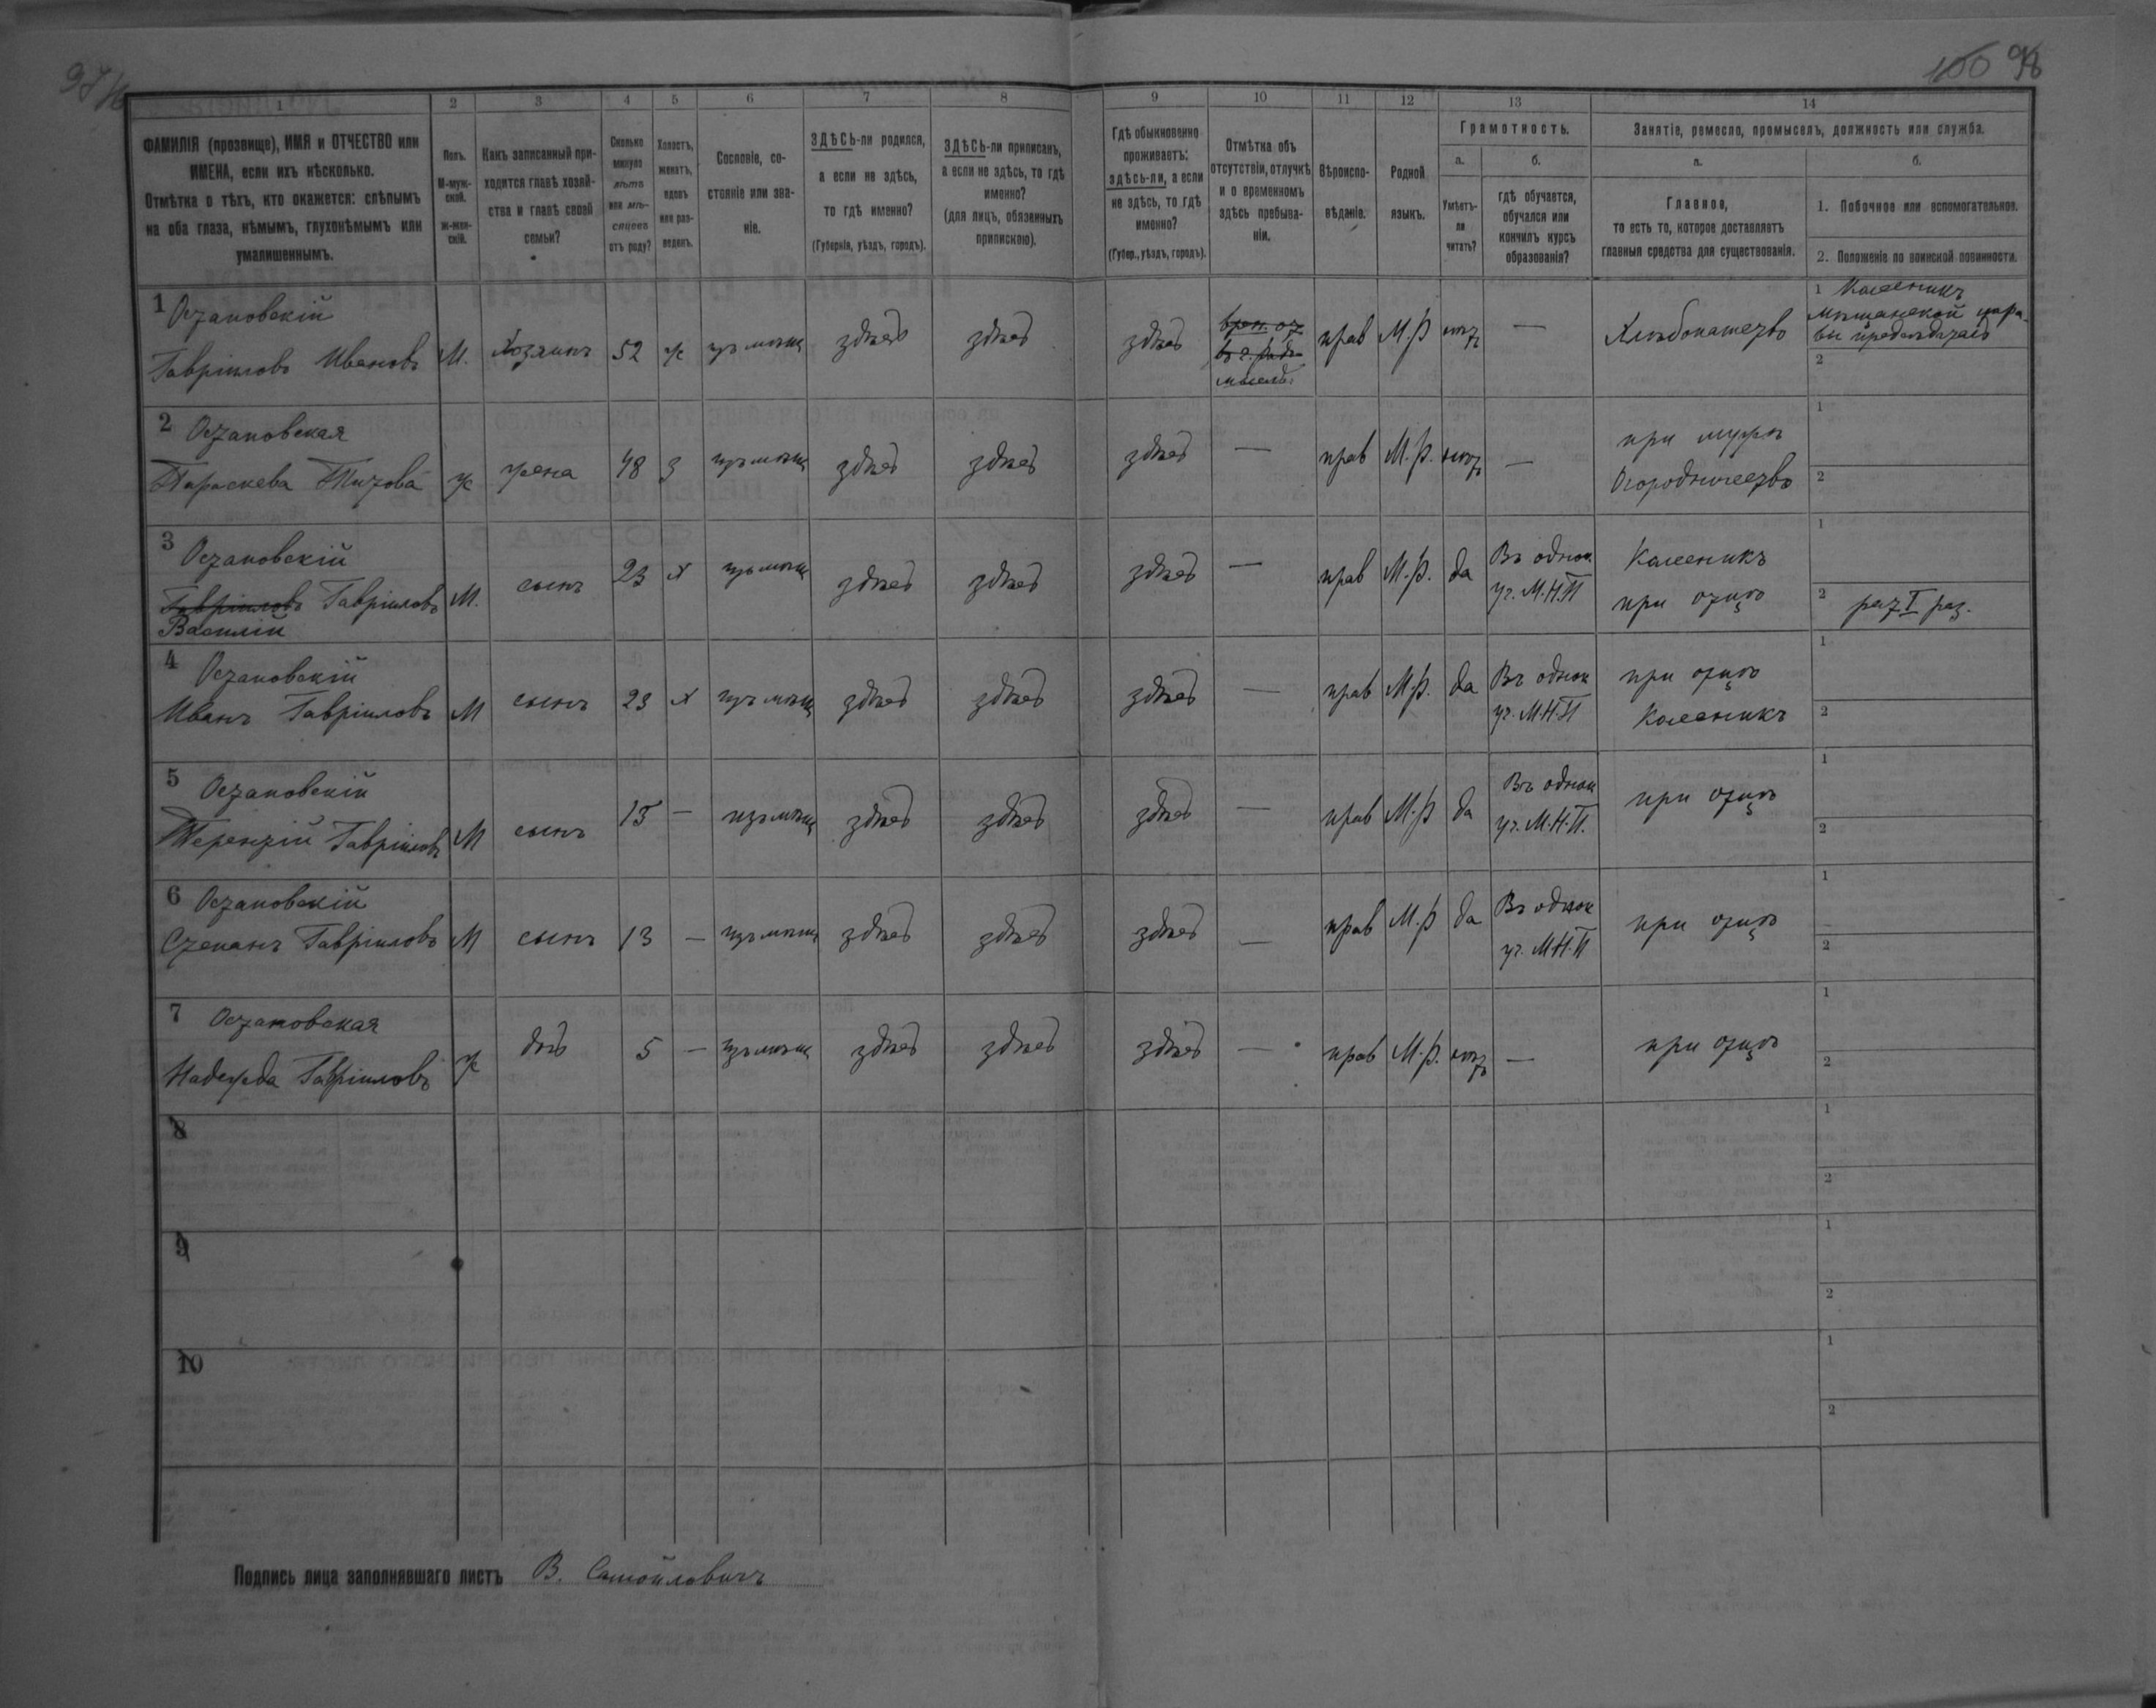 100 98
1 2 3 4 5 6 7 8 9 10 11 12 13 14
ФАМИЛІЯ (прозвище), ИМЯ и ОТЧЕСТВО или
ИМЕНА, если ихъ нѣсколько.
Отмѣтка о тѣхъ, кто окажется: слѣпымъ
на оба глаза, нѣмымъ, глухонѣмымъ или
умалишеннымъ.
Полъ.
М-муж-
ской.
Ж-жен-
скій.
Какъ записанный при-
ходится главѣ хозяй-
ства и главѣ своей
семьи?
Сколько
минуло
лѣтъ
или мѣ-
сяцевъ
отъ роду?
Холостъ,
женатъ,
вдовъ
или раз-
веденъ.
Сословіе, со-
стояніе или зва-
ніе.
ЗДѢСЬ-ли родился,
а если не здѣсь,
то гдѣ именно?
(Губернія, уѣздъ, городъ).
ЗДѢСЬ-ли приписанъ,
а если не здѣсь, то гдѣ
именно?
(для лицъ, обязанныхъ
припискою).
Гдѣ обыкновенно
проживаетъ:
здѣсь-ли, а если
не здѣсь, то гдѣ
именно?
(Губер., уѣздъ, городъ).
Отмѣтка объ
отсутствіи, отлучкѣ
и о временномъ
здѣсь пребыва-
ніи.
Вѣроиспо-
вѣданіе.
Родной
языкъ.
Грамотность.
а.
Умѣетъ-
ли
читать?
б.
гдѣ обучается,
обучался или
кончилъ курсъ
образованія?
Занятіе, ремесло, промыселъ, должность или служба.
а.
Главное,
то есть то, которое доставляетъ
главныя средства для существованія.
б.
1. Побочное или вспомогательное.
2. Положеніе по воинской повинности.
1 Остановскій
Гавріиловъ Ивановъ М. Хозяинъ 52 ж изъ мѣщ здѣсь здѣсь здѣсь прав М.Р нѣтъ — Хлѣбопашество
1 Колесникъ
мѣщанской упра-
вы предсѣдатель
2
2 Остановская
Параскева Титова ж жена 48 з изъ мѣщ здѣсь здѣсь здѣсь — прав М.Р. нѣтъ —
при мужѣ
Огородничество
1
2
3 Остановскій
Гавріиловъ Гавріиловъ М. сынъ 23 х изъ мѣщ здѣсь здѣсь здѣсь — прав М.Р. да
Василій
Въ однок
уч. М.Н.П
Колесникъ
при отцѣ
1
2 рат I раз.
4 Остановскій
Иванъ Гавріиловъ М сынъ 23 х изъ мѣщ здѣсь здѣсь здѣсь — прав М.Р. да
Въ однок
уч. М.Н.П
при отцѣ
Колесникъ
1
2
5 Остановскій
Терентій Гавріиловъ М сынъ 15 — изъ мѣщ здѣсь здѣсь здѣсь — прав М.Р да
Въ однок
уч. М.Н.П.
при отцѣ
1
2
6 Остановскій
Степанъ Гавріиловъ М сынъ 13 — изъ мѣщ здѣсь здѣсь здѣсь — прав М.Р да
Въ однок
уч. М.Н.П
при отцѣ
1
2
7 Остановская
Надежда Гавріиловъ ж дчь 5 — изъ мѣщ здѣсь здѣсь здѣсь — прав М.Р. нѣтъ — при отцѣ
1
2
8
1
2
9
1
2
10
1
2
Подпись лица заполнявшаго листъ В. Самойловичъ